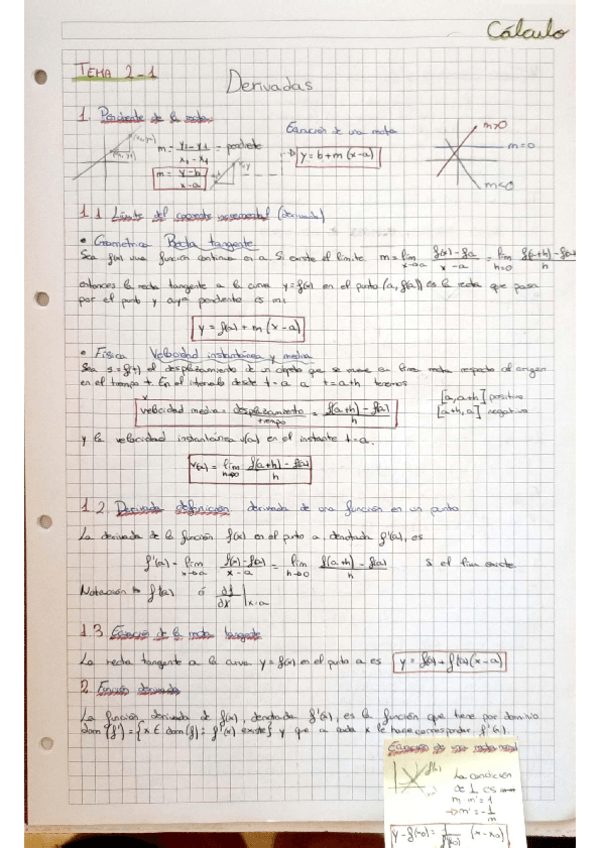 Cálculo
TEMA 2-1
Derivadas
1. Pendiente de la recta
(x1, y1)
m = y2 - y1 / x2 - x1 = pendiente
Ecuación de una recta
m>0
m = y-b / x-a
x,y
y = b + m (x-a)
m=0
m<0
1.1 Límite del cociente incremental (derivada)
• Geométrica Recta tangente
Sea f(x) una función continua en a. Si existe el límite m = lim x→a f(x) - f(a) / x - a = lim h=0 f(a+h) - f(a) / h
entonces la recta tangente a la curva y = f(x) en el punto (a, f(a)) es la recta que pasa
por el punto y cuya pendiente es m:
y = f(a) + m (x-a)
• Física Velocidad instantánea y media
Sea s = f(t) el desplazamiento de un objeto que se mueve en línea recta respecto al origen
en el tiempo t. En el intervalo desde t = a a t = a+h tenemos
[a, a+h] positivo
[a+h, a] negativo
velocidad media = desplazamiento / tiempo = f(a+h) - f(a) / h
y la velocidad instantánea v(a) en el instante t = a.
v(a) = lim h→0 f(a+h) - f(a) / h
1.2 Derivada definición derivada de una función en un punto
La derivada de la función f(x) en el punto a, denotada f'(a), es
f'(a) = lim x→a f(x) - f(a) / x - a = lim h→0 f(a+h) - f(a) / h si el lim existe
Notación f'(a) ó df / dx | x=a
1.3 Ecuación de la recta tangente
La recta tangente a la curva y = f(x) en el punto a es y = f(a) + f'(a) (x-a)
2. Función derivada
La función derivada de f(x), denotada f'(x), es la función que tiene por dominio
dom (f') = {x ∈ dom(f) : f'(x) existe} y que a cada x le hace corresponder f'(x).
Ecuación de una recta normal
La condición
de ⊥ es
m m' = 1
→ m' = -1 / m